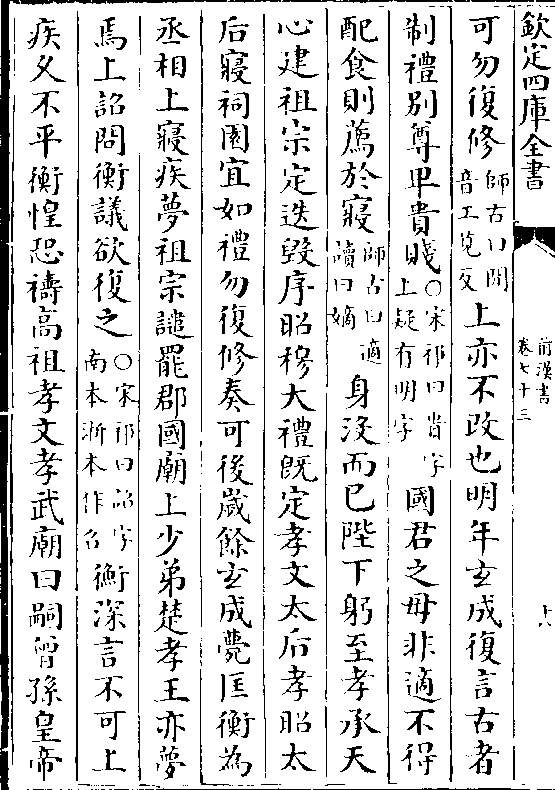 欽定四庫全書
前漢書
卷七十三
十八
可勿復修師古曰間音工莧反上亦不改也明年玄成復言古者
制禮別尊卑貴賤○宋祁曰貴字上疑有明字國君之母非適不得
配食則薦於寢師古曰適讀曰嫡身沒而已陛下躬至孝承天
心建祖宗定迭毀序昭穆大禮既定孝文太后孝昭太
后寢祠園宜如禮勿復修奏可後歲餘玄成薨匡衡為
丞相上寢疾夢祖宗譴罷郡國廟上少弟楚孝王亦夢
焉上詔問衡議欲復之○宋祁曰詔字南本浙本作召衡深言不可上
疾久不平衡惶恐禱高祖孝文孝武廟曰嗣曾孫皇帝